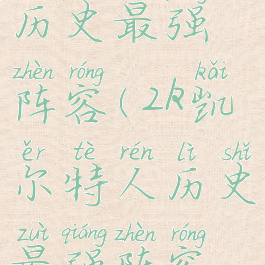 历史最强
zhèn róng kǎi
阵容(2k凯
ěr tè rén lì shǐ
尔特人历史
zuì qiáng zhèn róng
最强阵容